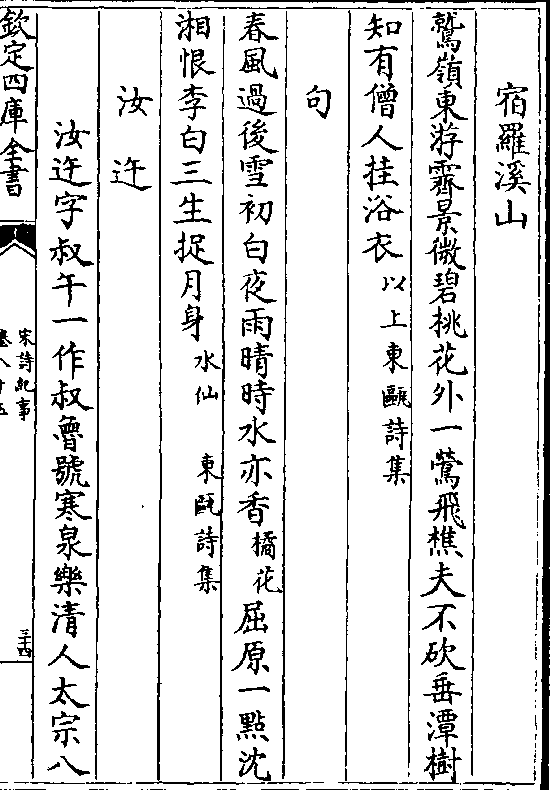 宿羅溪山
鷲嶺東游霽景微碧桃花外一鶯飛樵夫不砍垂潭樹
知有僧人挂浴衣以上東甌詩集
句
春風過後雪初白夜雨晴時水亦香橘花屈原一點沈
湘恨李白三生捉月身水仙 東甌詩集
汝迕
汝迕字叔午一作叔魯號寒泉樂清人太宗八
欽定四庫全書
宋詩紀事
卷八十五
三十四